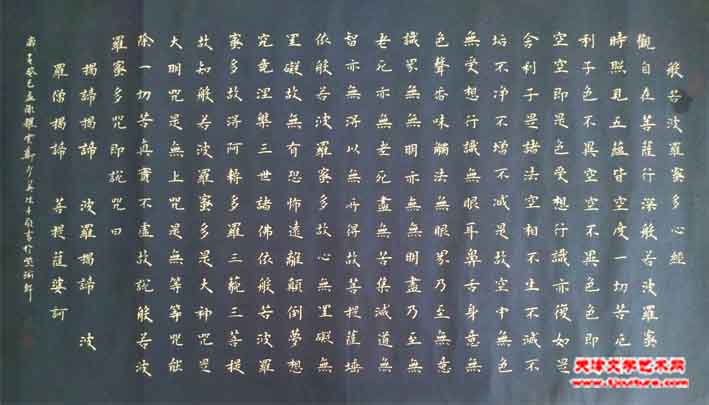 般若波羅蜜多心經
觀自在菩薩行深般若波羅蜜多
時照見五蘊皆空度一切苦厄舍
利子色不異空空不異色色即是
空空即是色受想行識亦復如是
舍利子是諸法空相不生不滅不
垢不淨不增不減是故空中無色
無受想行識無眼耳鼻舌身意無
色聲香味觸法無眼界乃至無意
識界無無明亦無無明盡乃至無
老死亦無老死盡無苦集滅道無
智亦無得以無所得故菩提薩埵
依般若波羅蜜多故心無罣礙無
罣礙故無有恐怖遠離顛倒夢想
究竟涅槃三世諸佛依般若波羅
蜜多故得阿耨多羅三藐三菩提
故知般若波羅蜜多是大神咒是
大明咒是無上咒是無等等咒能
除一切苦真實不虛故說般若波
羅蜜多咒即說咒曰
揭諦揭諦 波羅揭諦 波
羅僧揭諦 菩提薩婆訶
天津文学艺术网
www.tjcuture.com